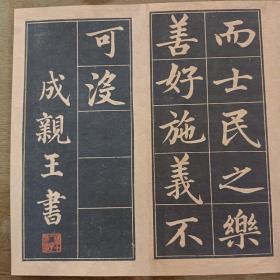 而士民之樂
善好施義不
可没
成親王書